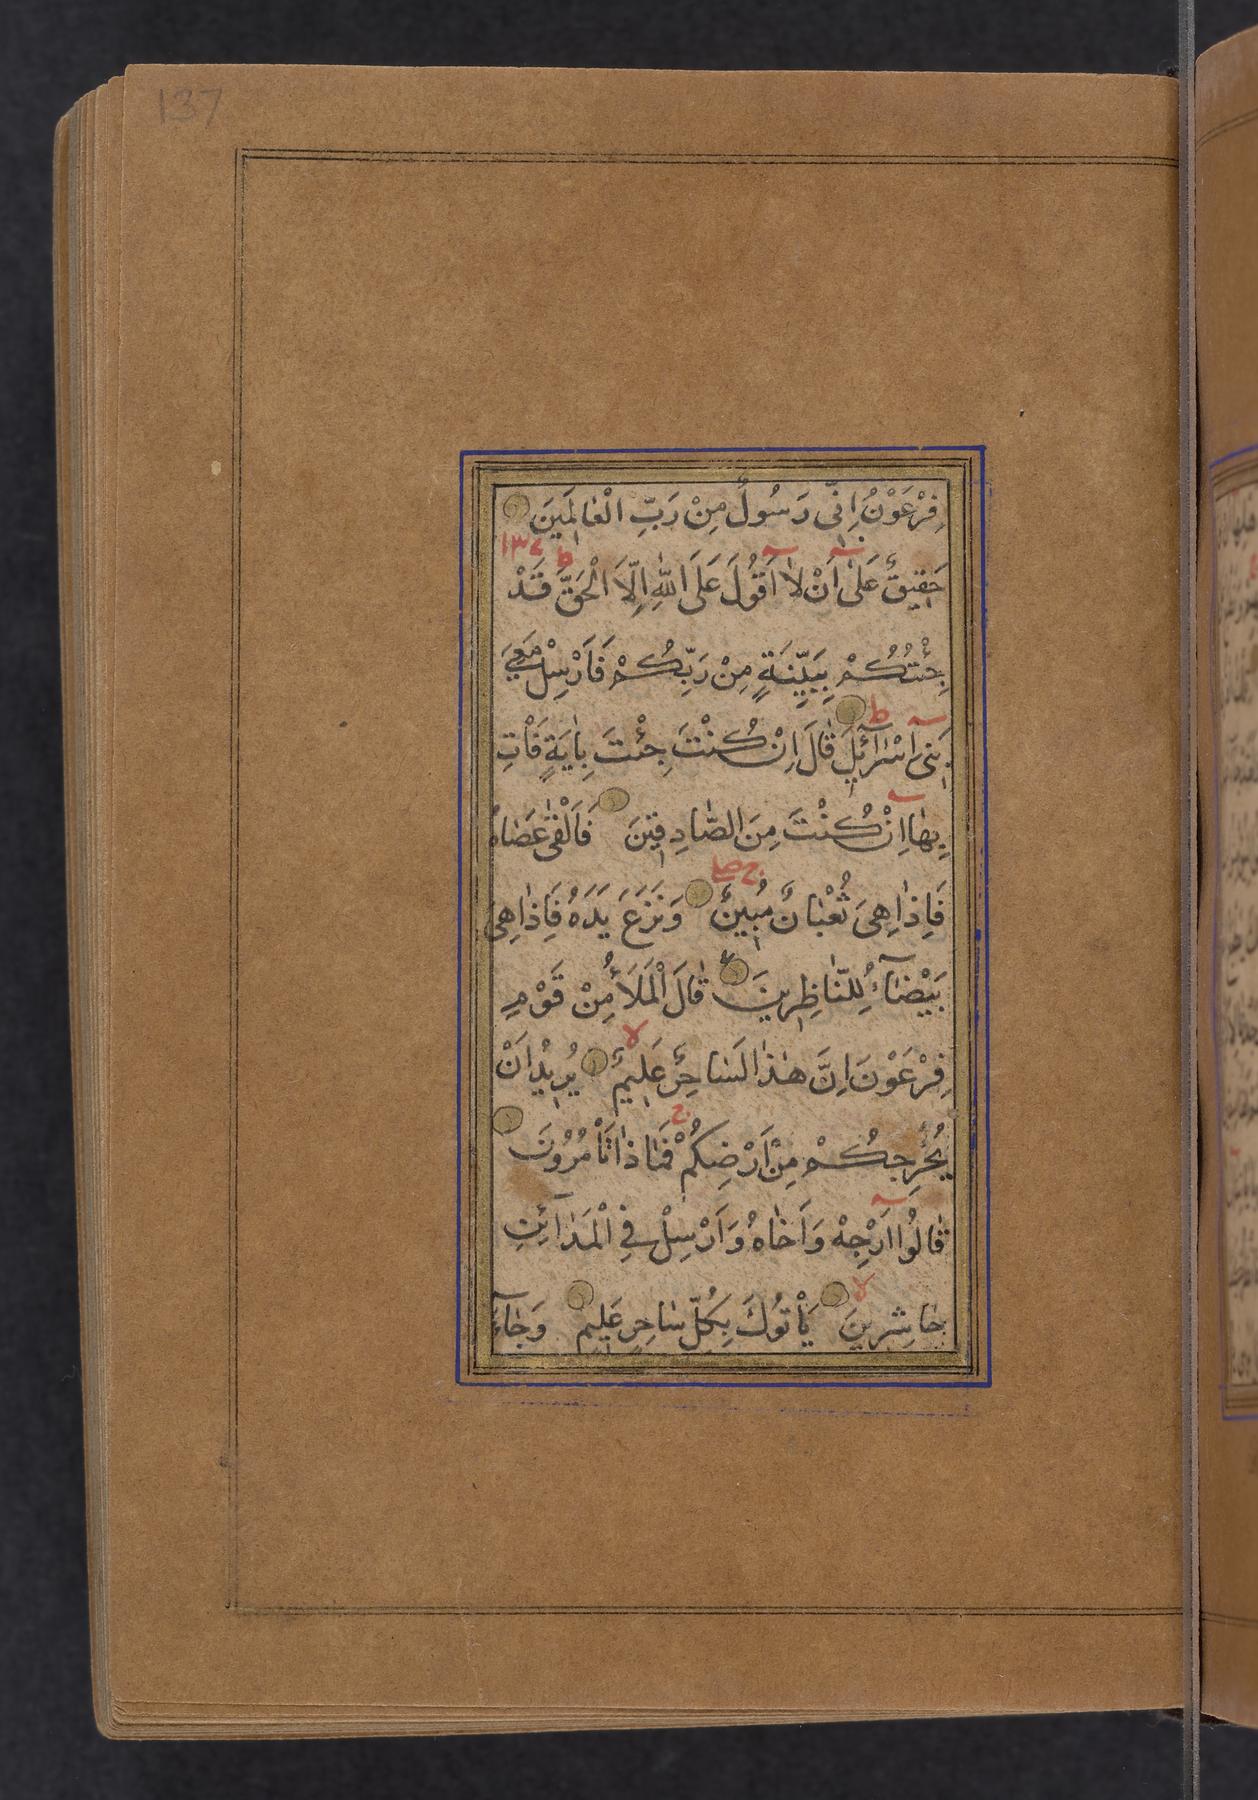 137
فِرْعَوْنُ اِنّٖى رَسُولٌ مِنْ رَبِّ الْعٰالَمٖينَ
١٣٧
حَقٖيقٌ عَلٰىٓ اَنْ لٰٓا اَقُولَ عَلَى اللّٰهِ اِلَّا الْحَقَّ ط قَدْ
جِئْتُكُمْ بِبَيِّنَةٍ مِنْ رَبِّكُمْ فَاَرْسِلْ مَعِيَ
بَنٖىٓ اِسْرٰٓائٖلَ ط قٰالَ اِنْ كُنْتَ جِئْتَ بِاٰيَةٍ فَاْتِ
بِهٰٓا اِنْ كُنْتَ مِنَ الصّٰادِقٖينَ فَاَلْقٰى عَصٰاهُ
فَاِذٰا هِىَ ثُعْبٰانٌ مُبٖينٌ ج صلے وَنَزَعَ يَدَهُ فَاِذٰا هِىَ
بَيْضٰٓاءُ لِلنّٰاظِرٖينَ ع قٰالَ الْمَلَأُ مِنْ قَوْمِ
فِرْعَوْنَ اِنَّ هٰذٰا لَسٰاحِرٌ عَلٖيمٌ لا يُرٖيدُ اَنْ
يُخْرِجَكُمْ مِنْ اَرْضِكُمْ ج فَمٰا ذٰا تَأْمُرُونَ
قٰالُوٓا اَرْجِهْ وَاَخٰاهُ وَاَرْسِلْ فِي الْمَدٰٓائِنِ
حٰاشِرٖينَ لا يَأْتُوكَ بِكُلِّ سٰاحِرٍ عَلٖيمٍ وَجٰٓاءَ